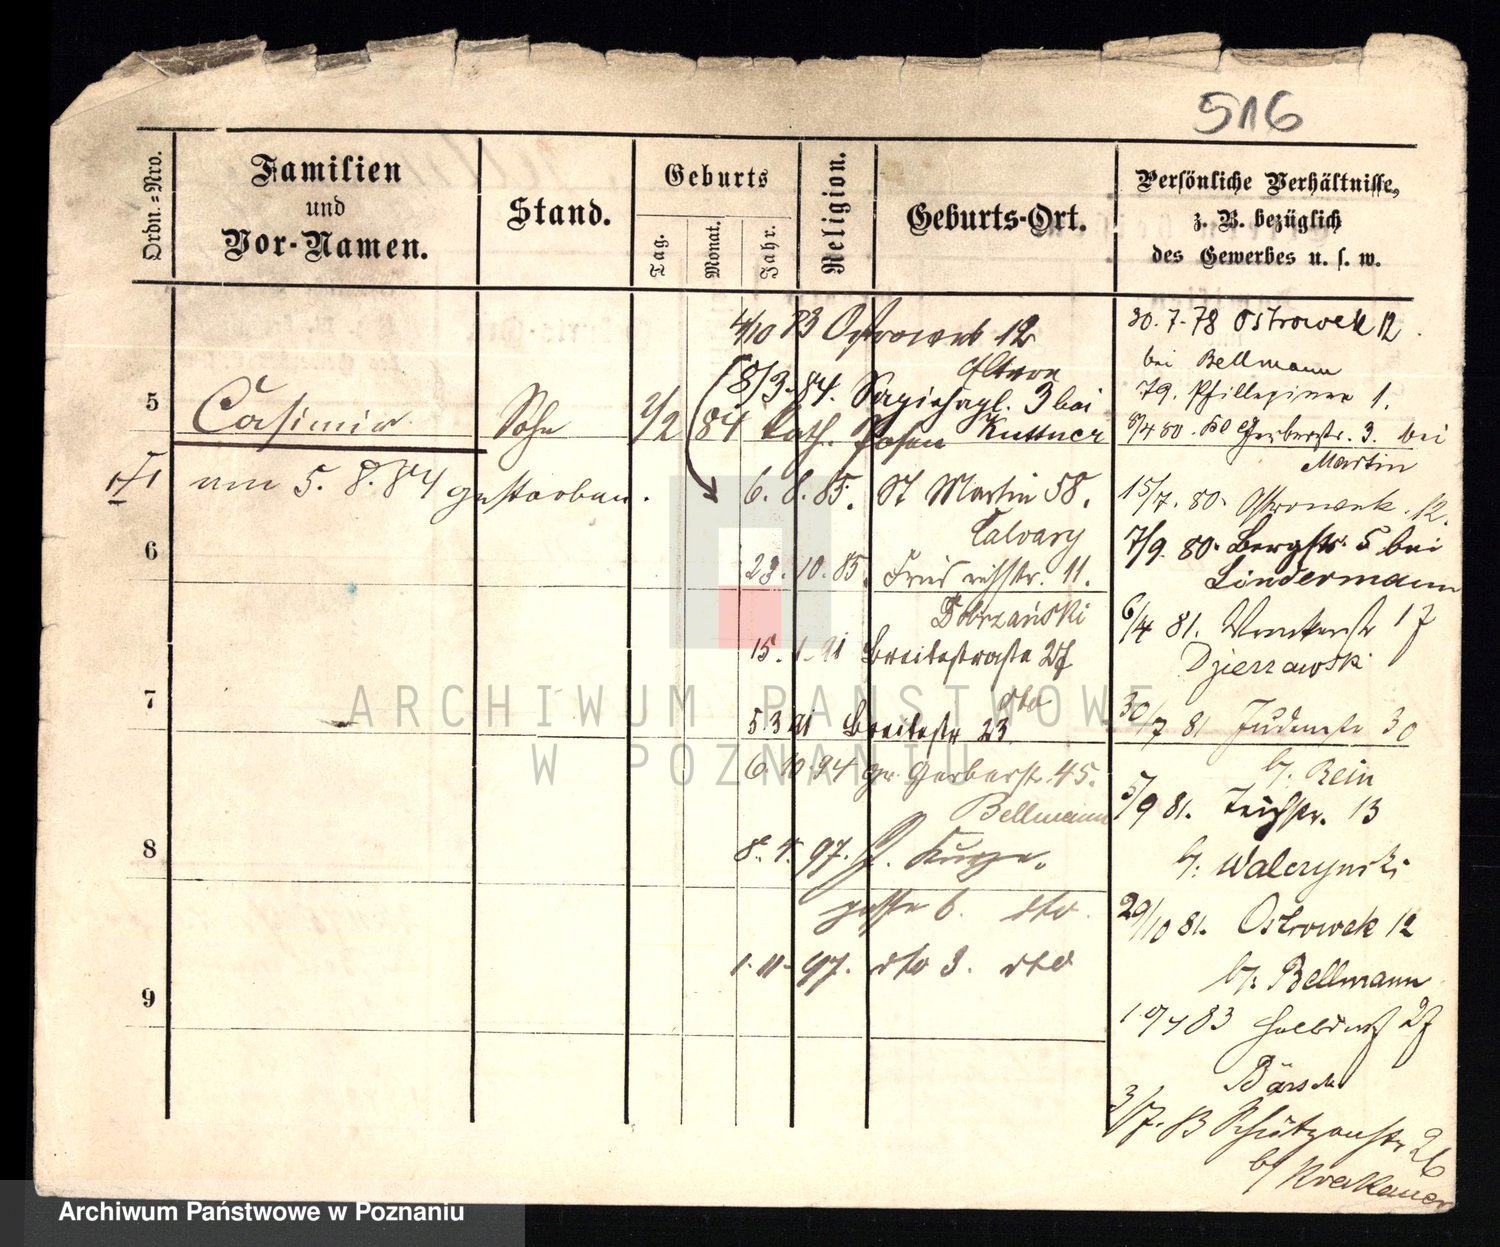 516
Ordn.=Nro.
Familien
und
Vor-Namen.
Stand.
Geburts
Tag.
Monat.
Jahr.
Religion.
Geburts-Ort.
Persönliche Verhältnisse,
z. B. bezüglich
des Gewerbes u. s. w.
4/10 83 Ostrowek 12
8/3. 84. 3 bei
5 Casimir Sohn 2/2 84 kath. Posen Kuttner
am 5. 8. 84 gestorben.
6. 8. 85. St Martin 58.
Calvary
6
23. 10. 85. Friedrichstr. 11.
Dobrzański
15. 1. 91 Breitestraße 27
dto
7
5 3 91 Breitestr 23
6. 10. 94 gr. Gerberstr. 45.
Bellmann
8
8. 4. 97.
gasse 6. dto.
1. 11. 97. dto 3. dto
9
30. 7. 78 Ostrowek 12.
bei Bellmann
79. 1.
8/4 80. Kl Gerberstr. 3. bei
Martin
15/7. 80. Ostrowek. 12.
7/9. 80. Bergstr. 5 bei
Lindermann
6/4 81. 17
Dzierzawski
30/7 81 Judenstr 30
b/. Rein
5/9 81. Teichstr. 13
b/. Walczynski
29/10 81. Ostrowek 12
b/. Bellmann
83 Halbdorf 27
Bärsch
3/7. 83 Schützenstr 26
b/ Krakauer
ARCHIWUM PAŃSTWOWE
W POZNANIU
Archiwum Państwowe w Poznaniu